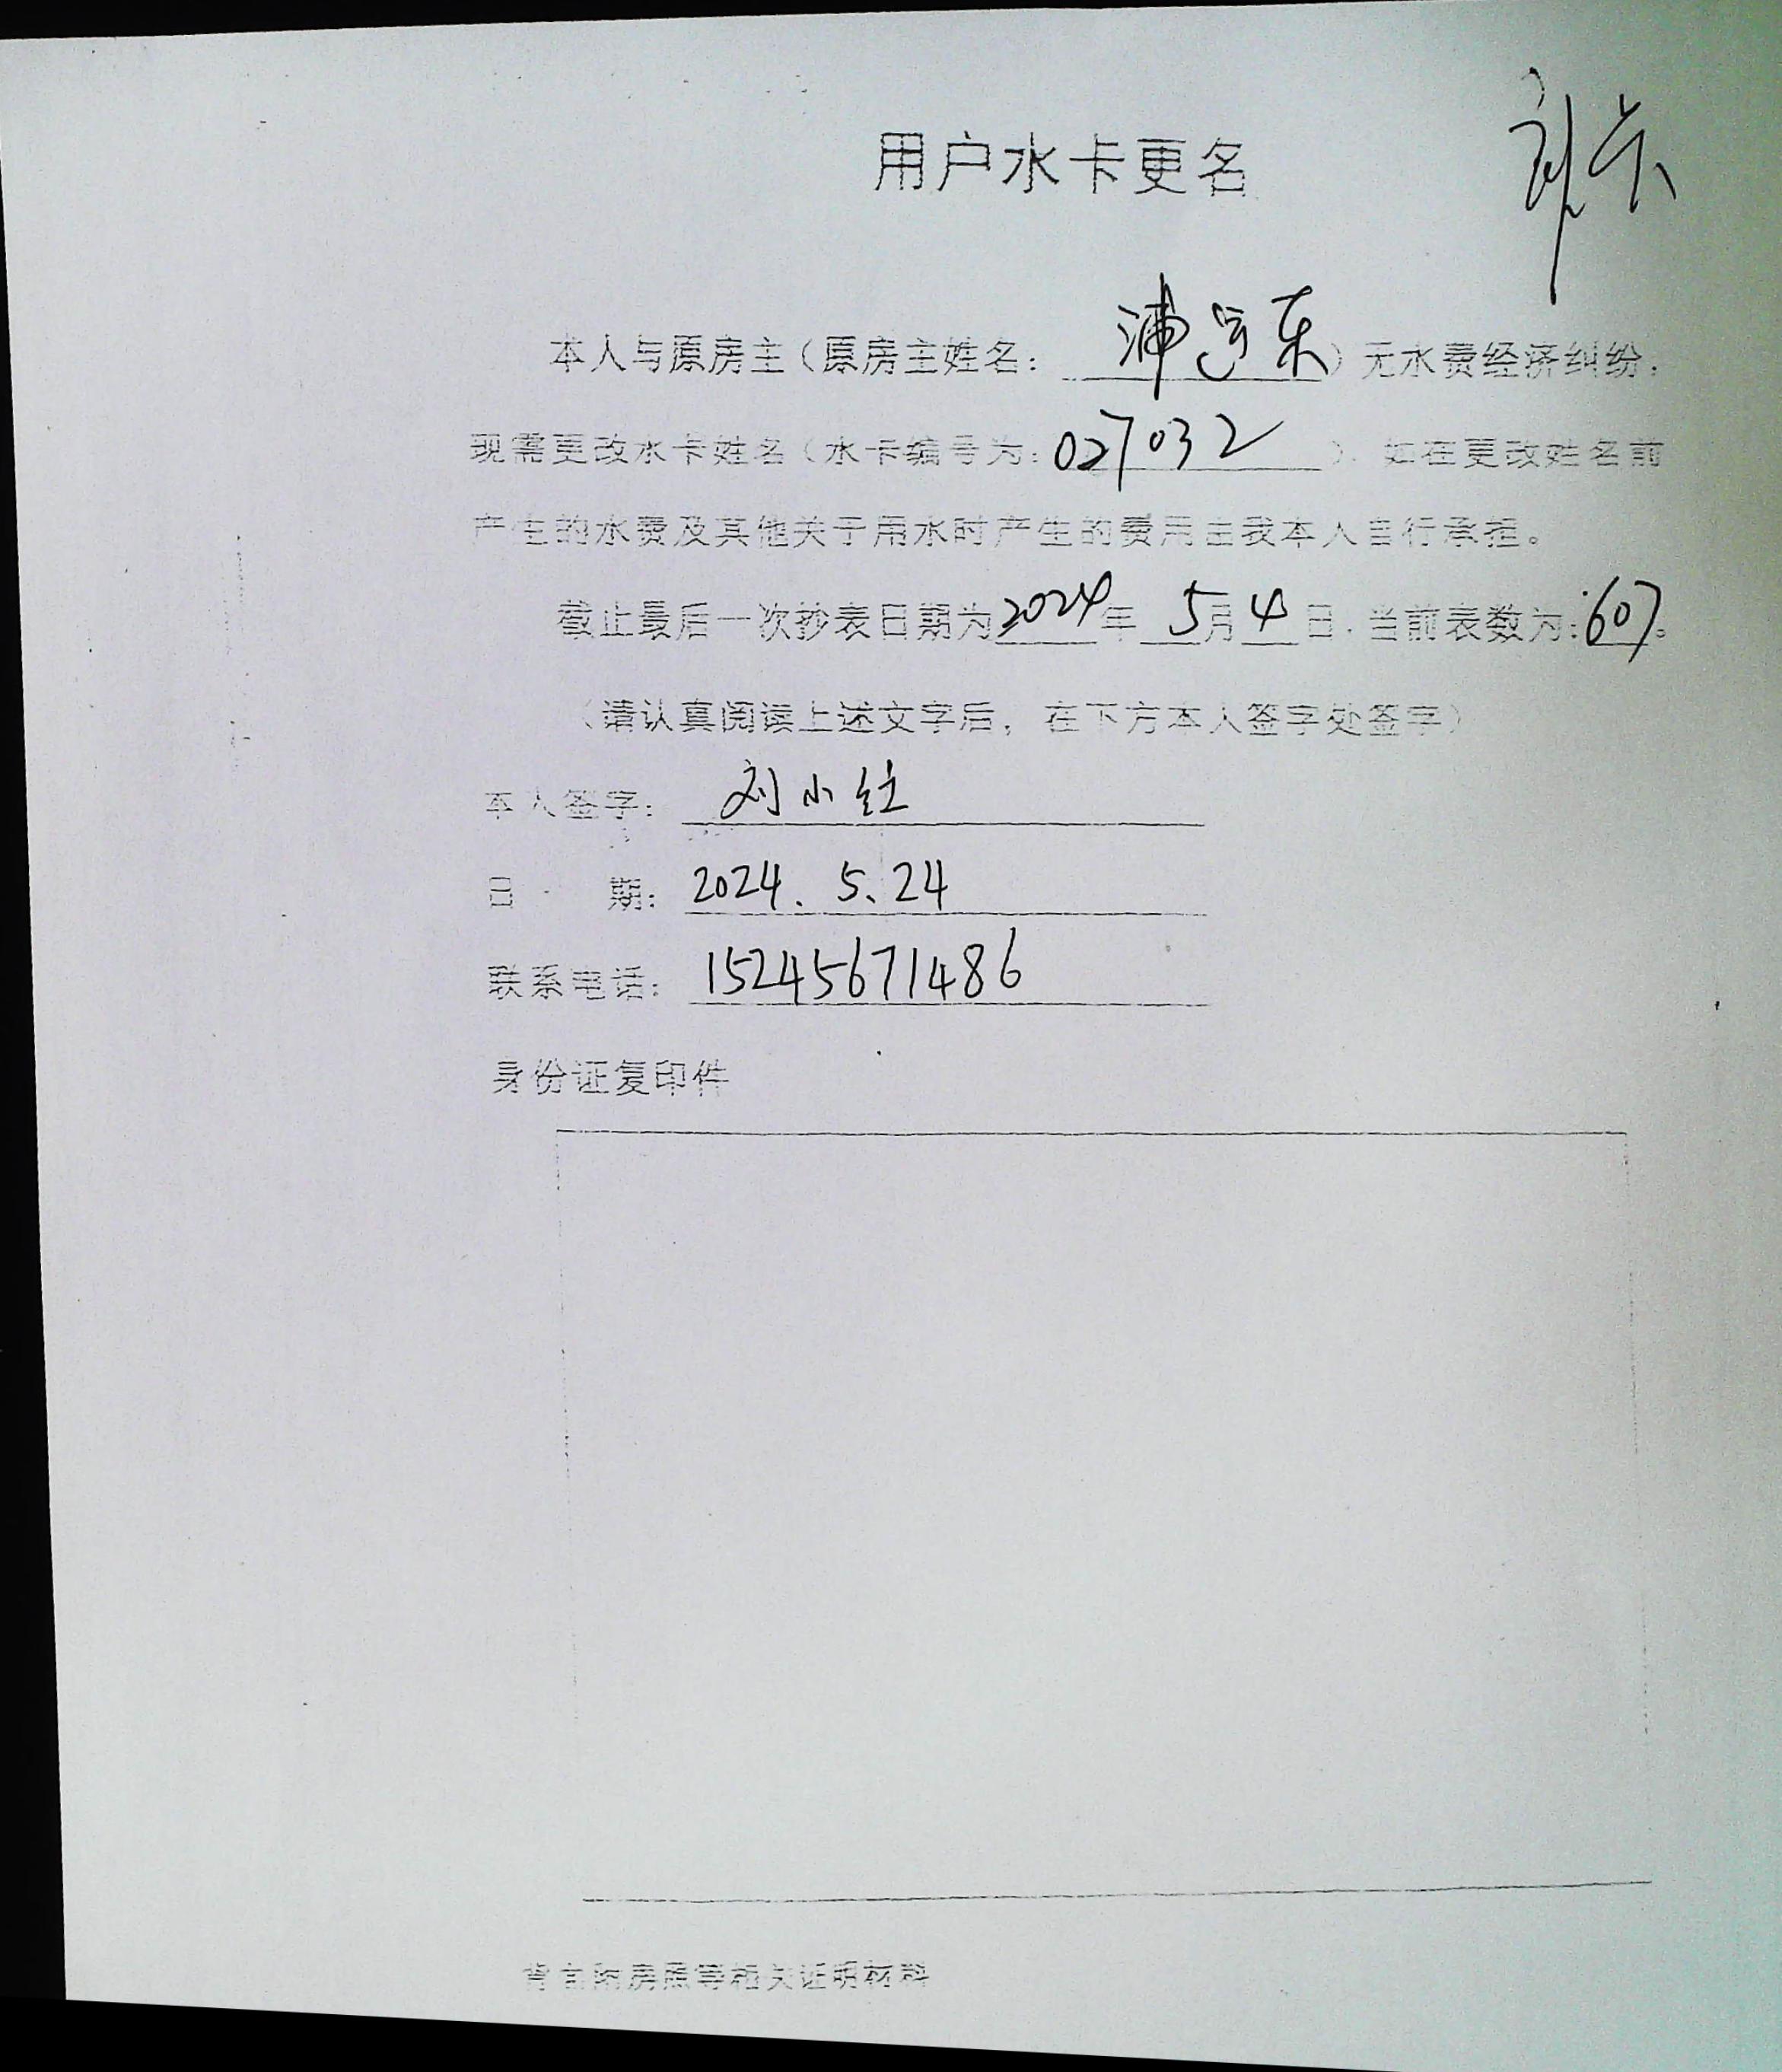 用户水卡更名
本人与原房主（原房主姓名：浦运东）无水费经济纠纷，
现需更改水卡姓名（水卡编号为：027032），如在更改姓名前
产生的水费及其他关于用水时产生的费用由我本人自行承担。
截止最后一次抄表日期为2024年5月4日，当前表数为：607。
（请认真阅读上述文字后，在下方本人签字处签字）
本人签字：刘小红
日期：2024.5.24
联系电话：15245671486
身份证复印件
背面附房照等相关证明材料